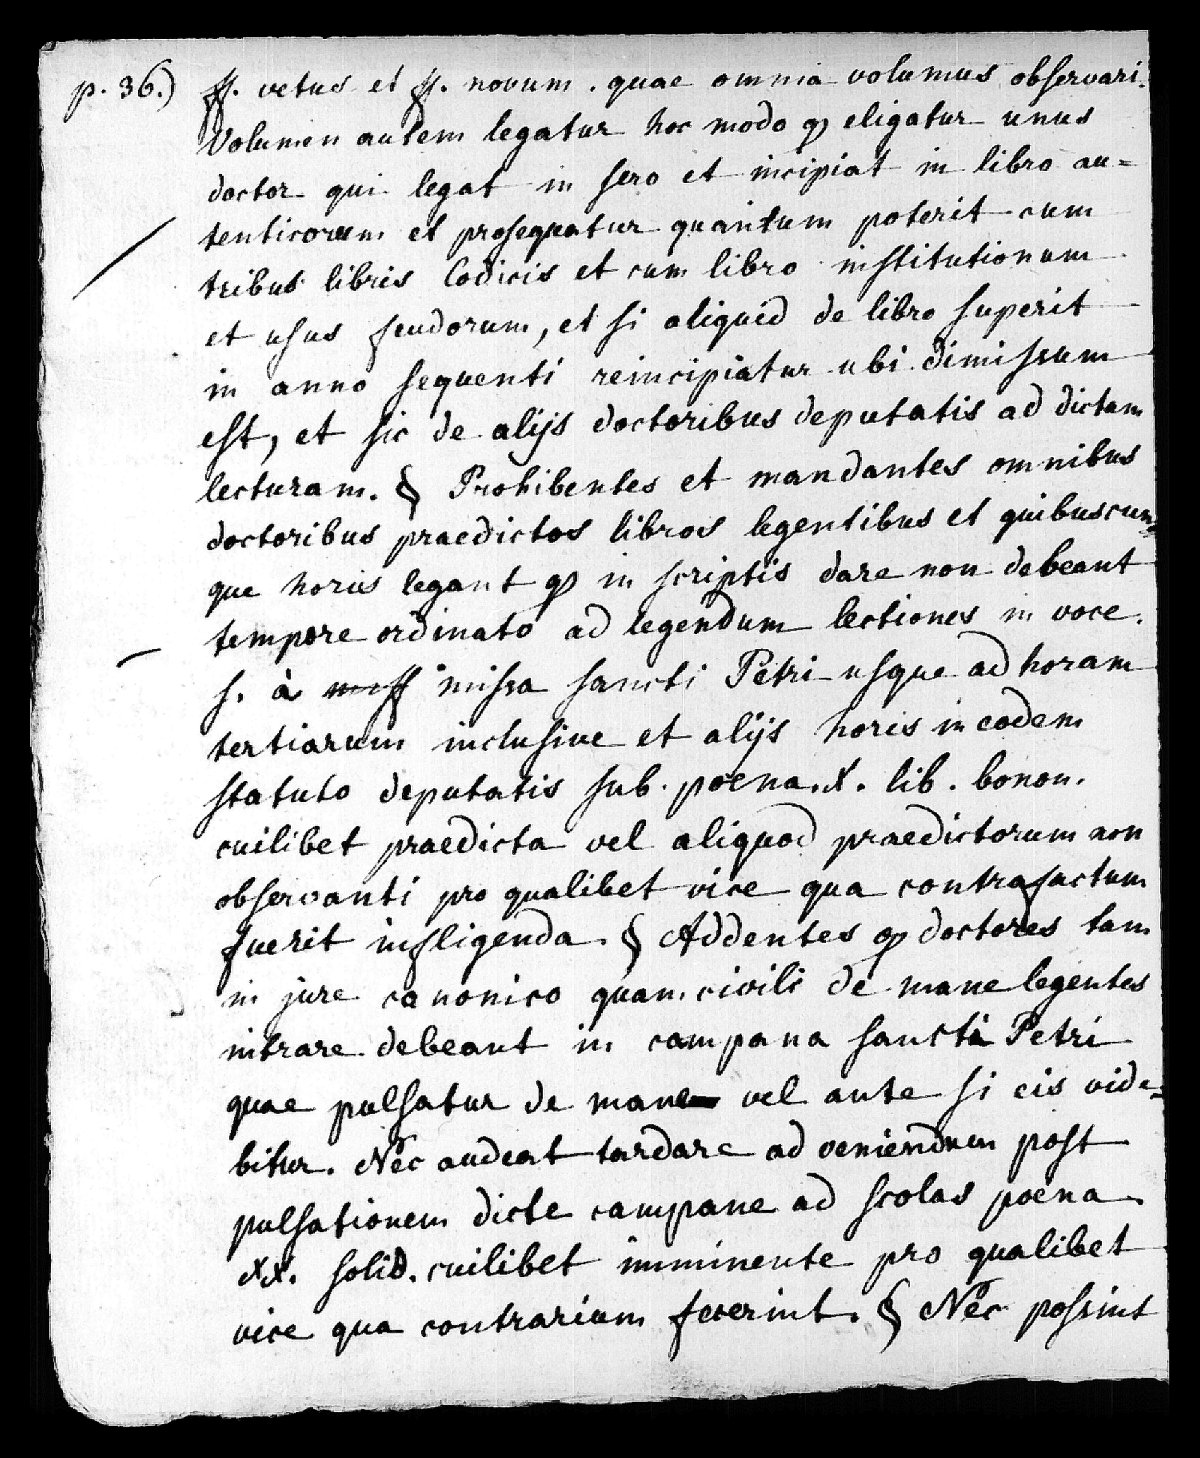 p. 36.) ff. vetus et ff. novum. quae omnia volumus observari.
Volumen autem legatur hoc modo qꝫ eligatur unus
doctor qui legat in sero et incipiat in libro au=
tenticorum et prosequatur quantum poterit cum
tribus libris Codicis et cum libro institutionum
et usus feudorum, et si aliquid de libro superit
in anno sequenti reincipiatur ubi dimissum
est, et sic de alijs doctoribus deputatis ad dictam
lecturam. § Prohibentes et mandantes omnibus
doctoribus praedictos libros legentibus et quibuscum=
que horis legant qꝫ in scriptis dare non debeant
tempore ordinato ad legendum lectiones in voce.
s. à miss missa sancti Petri usque ad horam
tertiarum inclusive et alijs horis in eodem
statuto deputatis sub. poena .X. lib. bonon.
cuilibet praedicta vel aliquod praedictorum non
observanti pro qualibet vice qua contrafactum
fuerit infligenda. § Addentes qꝫ doctores tam
in jure canonico quam civili de mane legentes
intrare debeant in campana sancti Petri
quae pulsatur de mane vel ante si eis vide=
bitur. Nec audeat tardare ad veniendum post
pulsationem dicte campane ad scolas poena
XX. solid. cuilibet imminente pro qualibet
vice qua contrarium fecerint. § Nec possint